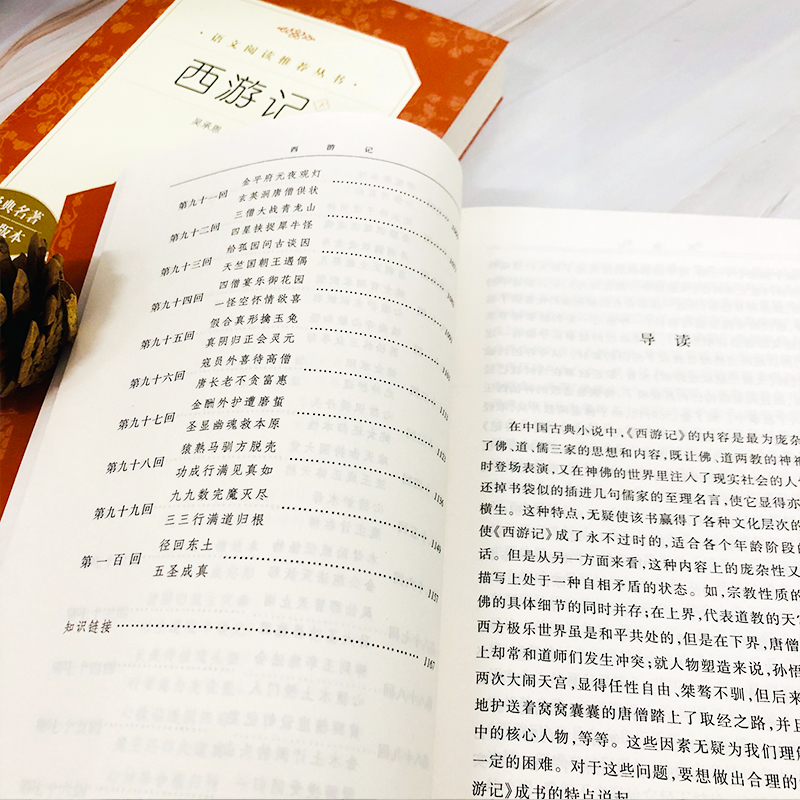 语文阅读推荐丛书
西游记
吴承恩
经典名著
版本
西游记
第九十一回 金平府元夜观灯
玄英洞唐僧供状
第九十二回 三僧大战青龙山
四星挟捉犀牛怪
第九十三回 给孤园问古谈因
天竺国朝王遇偶
第九十四回 四僧宴乐御花园
一怪空怀情欲喜
第九十五回 假合真形擒玉兔
真阴归正会灵元
第九十六回 寇员外喜待高僧
唐长老不贪富惠
第九十七回 金酬外护遭磨蜇
圣显幽魂救本原
第九十八回 猿熟马驯方脱壳
功成行满见真如
第九十九回 九九数完魔灭尽
三三行满道归根
第一百回 径回东土
五圣成真 1157
知识链接 1167
导读
在中国古典小说中,《西游记》的内容是最为庞杂
了佛、道、儒三家的思想和内容,既让佛、道两教的神
时登场表演,又在神佛的世界里注入了现实社会的人
还掉书袋似的插进几句儒家的至理名言,使它显得亦
横生。这种特点,无疑使该书赢得了各种文化层次的
使《西游记》成了永不过时的,适合各个年龄阶段的
话。但是从另一方面来看,这种内容上的庞杂性又
描写上处于一种自相矛盾的状态。如,宗教性质的
佛的具体细节的同时并存;在上界,代表道教的天宫
西方极乐世界虽是和平共处的,但是在下界,唐僧
上却常和道师们发生冲突;就人物塑造来说,孙悟
两次大闹天宫,显得任性自由、桀骜不驯,但后来
地护送着窝窝囊囊的唐僧踏上了取经之路,并且
中的核心人物,等等。这些因素无疑为我们理解
一定的困难。对于这些问题,要想做出合理的
游记》成书的特点说起